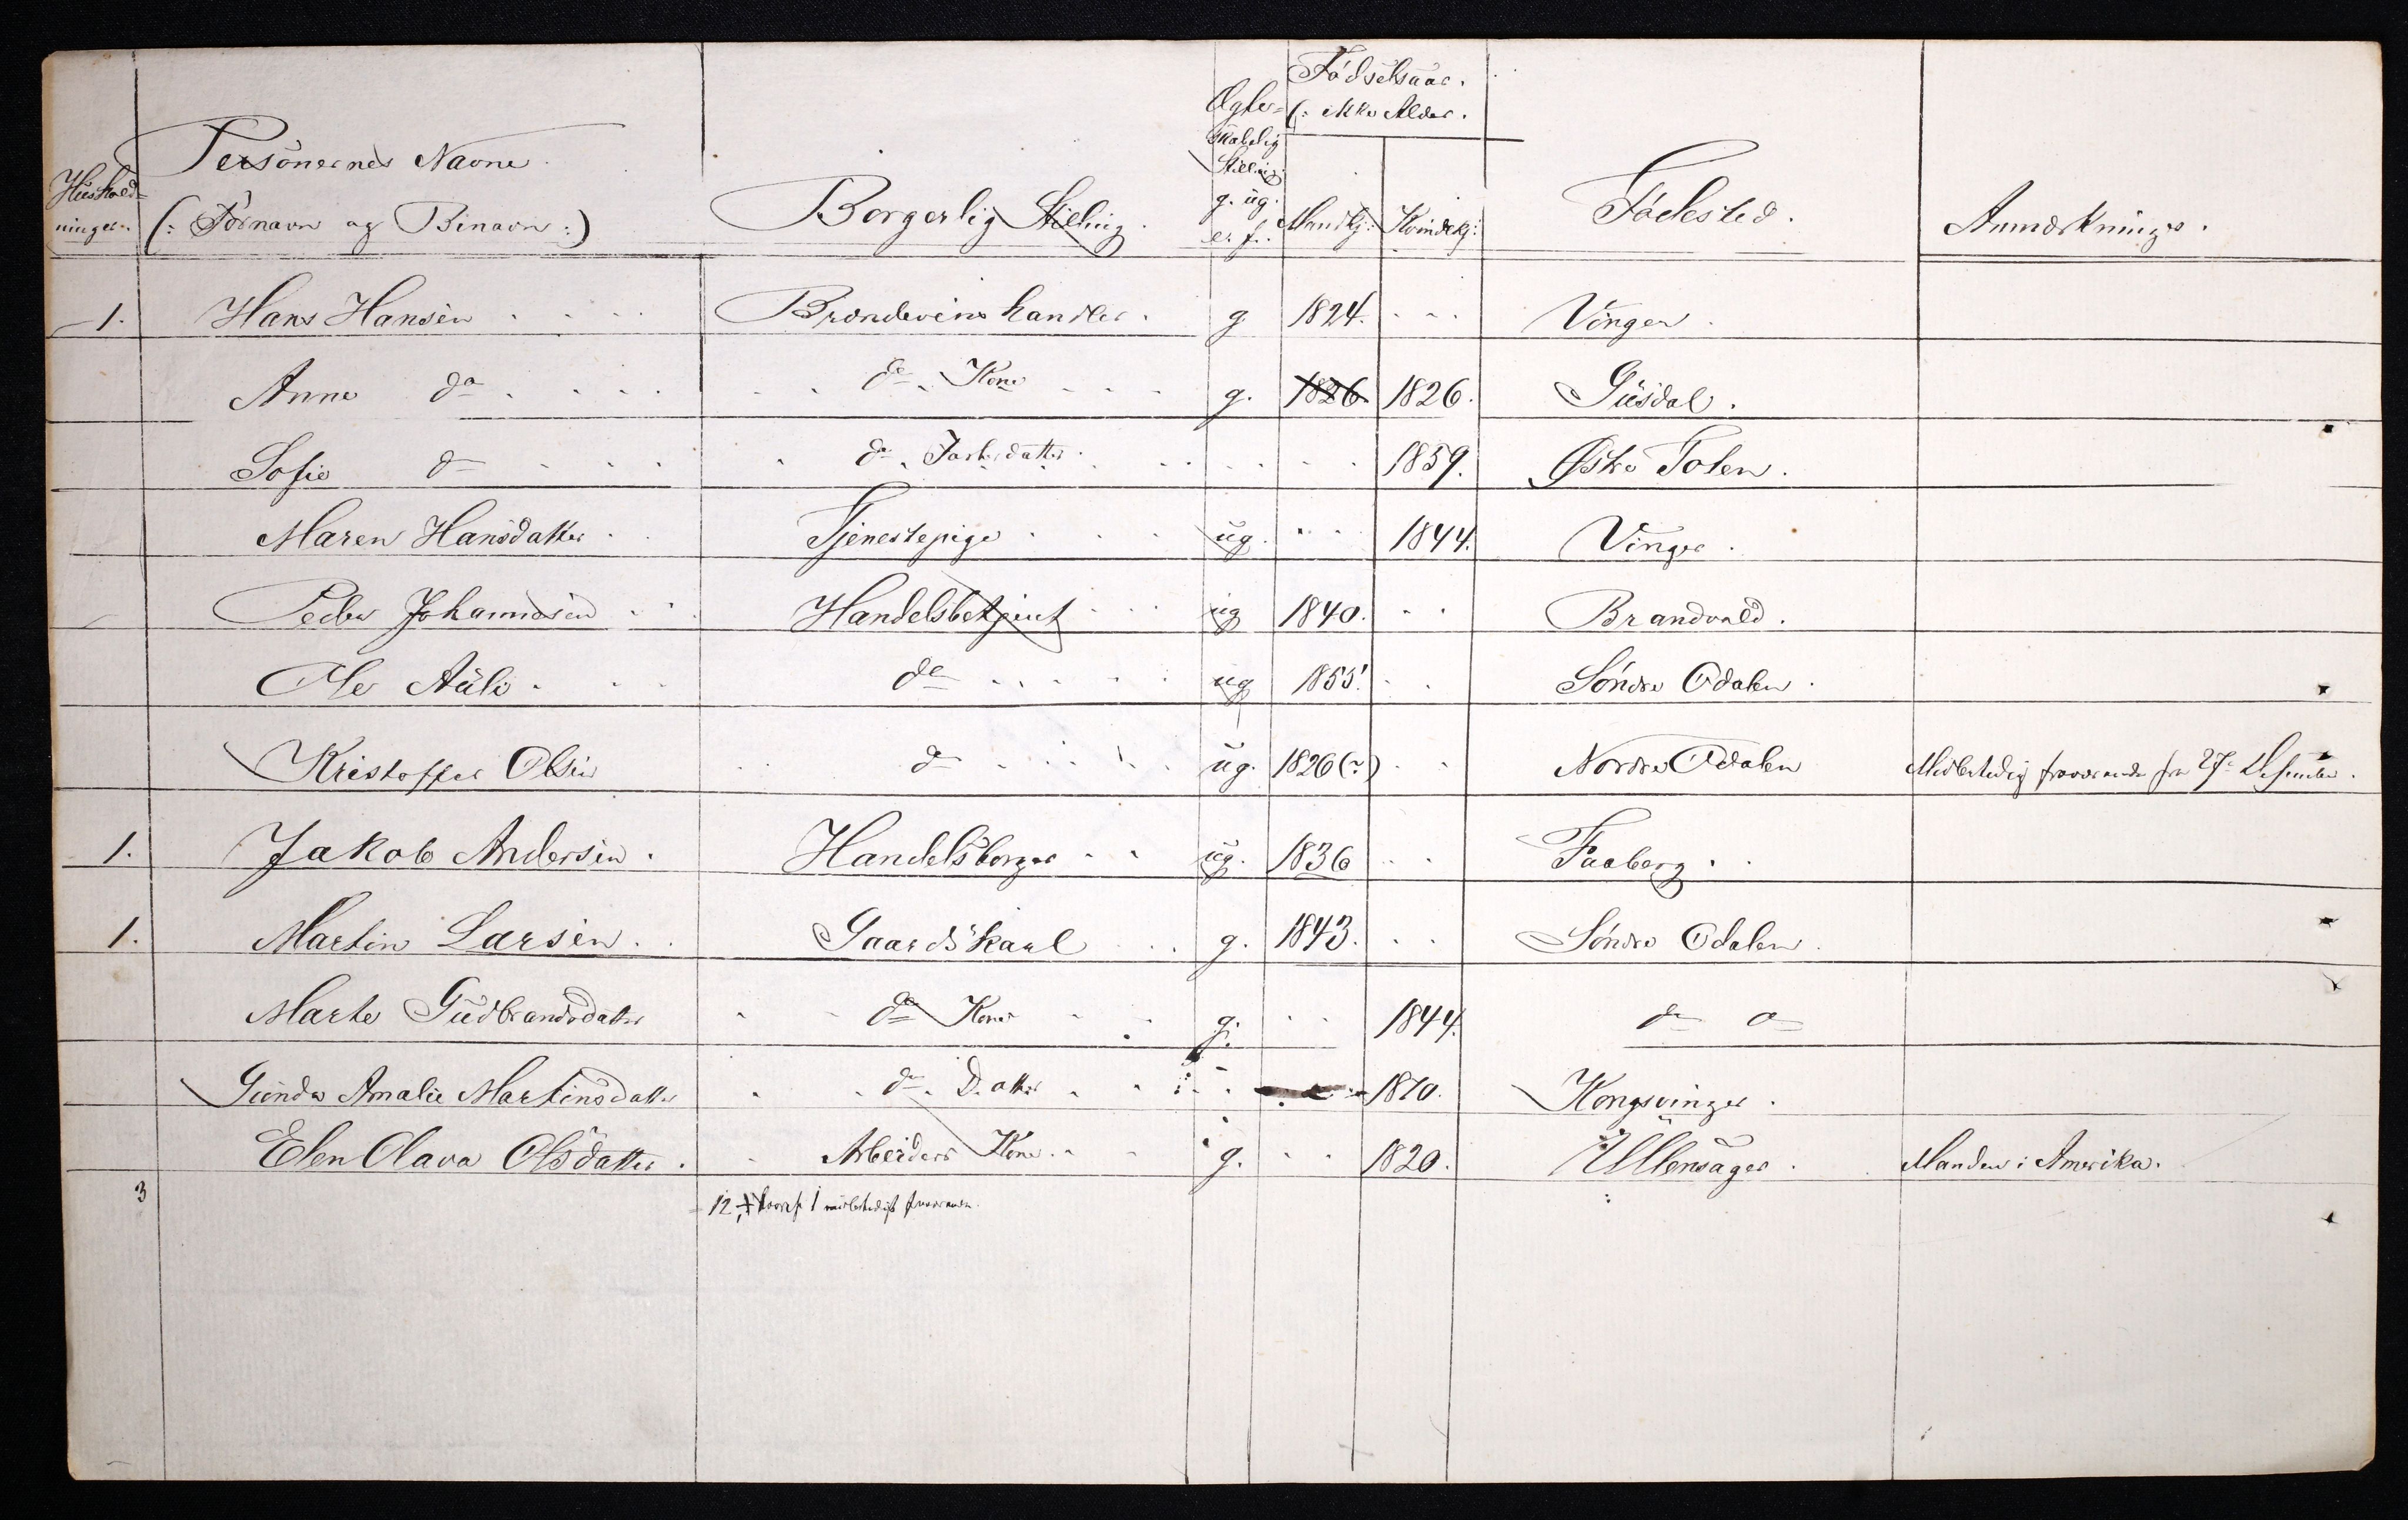 Hushold-
ninger.
Personernes Navne
(: Fornavn og Binavn :)
Borgerlig Stilling.
Ægte-
skabelig
Stilling.
g. ug.
e. f.
Fødselsaar.
(: ikke Alder.
Mandkj: Kvindekj:
Fødested.
Anmærkninger.
1. Hans Hansen Brændevinshandler. g 1824. Vinger.
Anne do do Kone g. 1826 1826. Gusdal.
Sofie do do Fosterdatter 1859. Østre Toten.
Maren Hansdatter Tjenestepige ug. 1844. Vinger.
Peder Johannesen Handelsbetjent ug 1840. Brandvold.
Ole Auli do ug 1855. Søndre Odalen.
Kristoffer Olsen do ug. 1826(?) Nordre Odalen Midlertidig fraværende fra 27de Desember.
1. Jakob Andersen. Handelsborger ug. 1836 Faaberg.
1. Martin Larsen. Gaardskarl g. 1843. Søndre Odalen.
Marte Gudbrandsdatter do Kone g. 1844. do do
Gunda Amalie Martinsdatter do Datter 1870. Kongsvinger.
Elen Olava Olsdatter. Arbeiders Kone. g. 1820. Ullensager. Manden i Amerika.
3 12, hvoraf 1 midlertidigt fraværende.